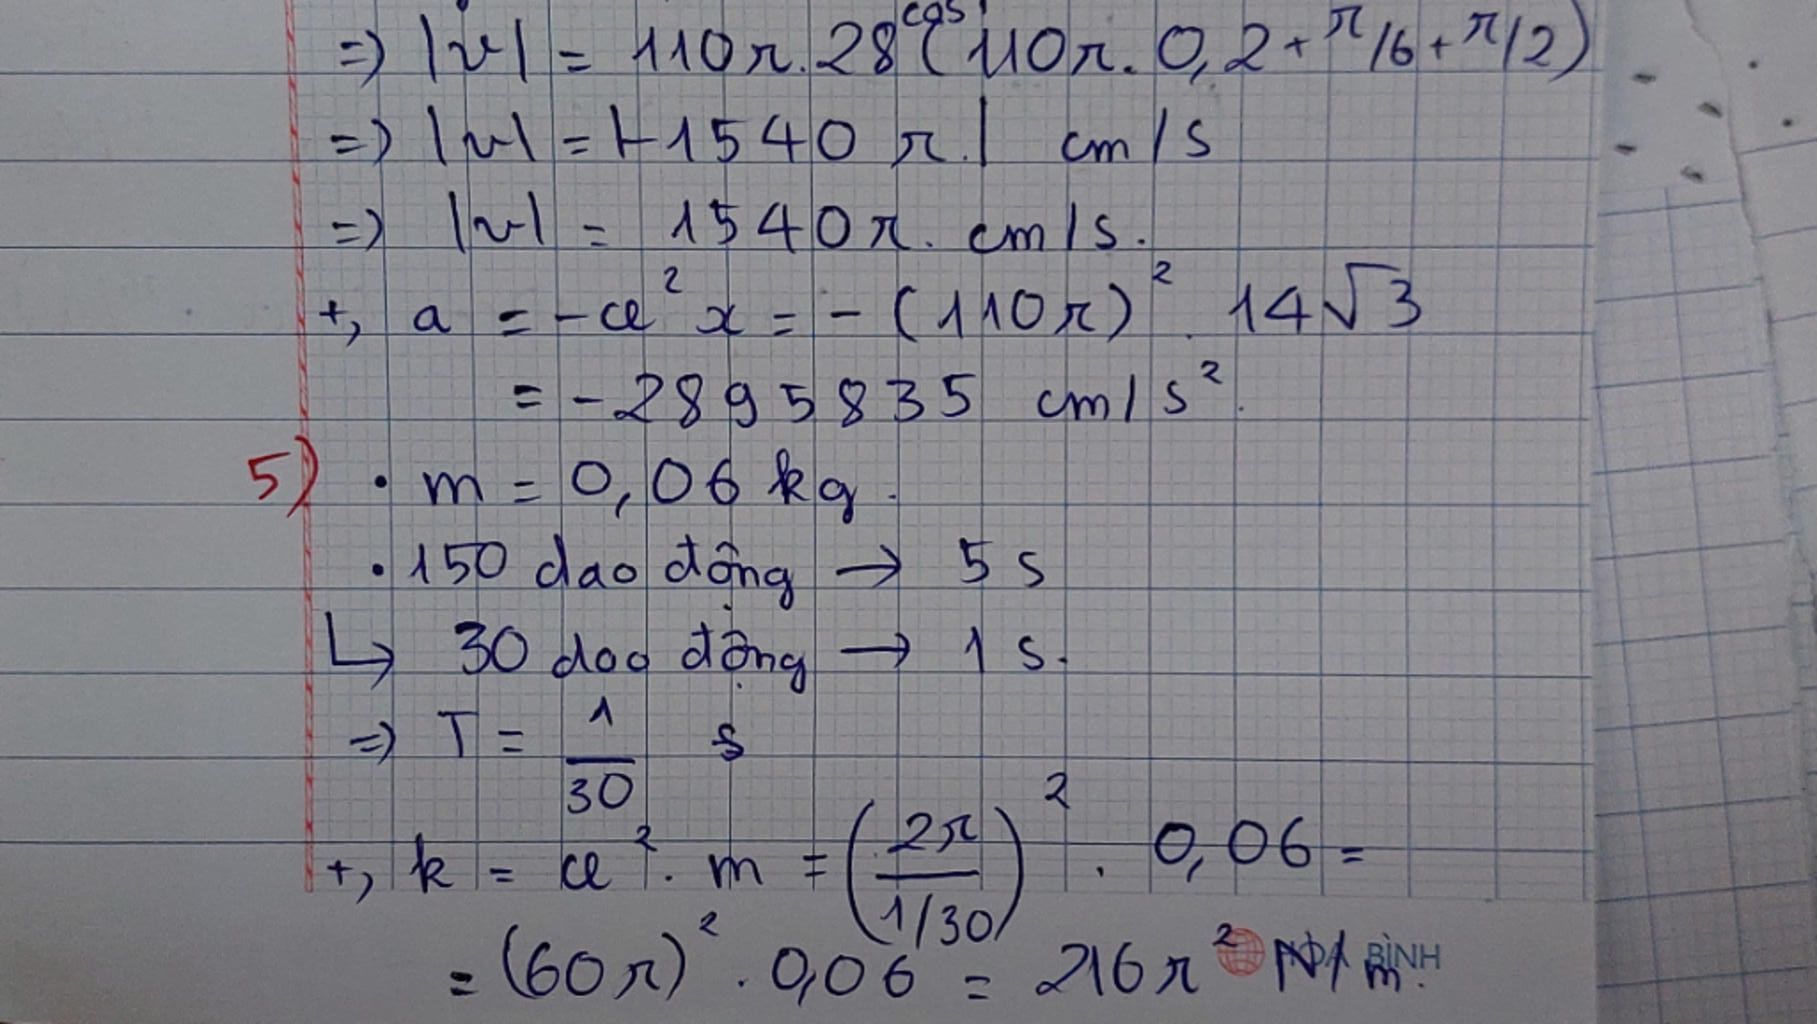 => |v| = 110π.28 cos(110π.0,2 + π/6 + π/2)
=> |v| = |-1540π.| cm/s
=> |v| = 1540π. cm/s.
+, a = -ω²x = -(110π)².14√3
= -2895835 cm/s².
5) • m = 0,06 kg.
• 150 dao động → 5 s
↳ 30 dao động → 1 s.
=> T = 1/30 s
+, k = ω².m = (2π/(1/30))².0,06 =
= (60π)².0,06 = 216π² N/m.